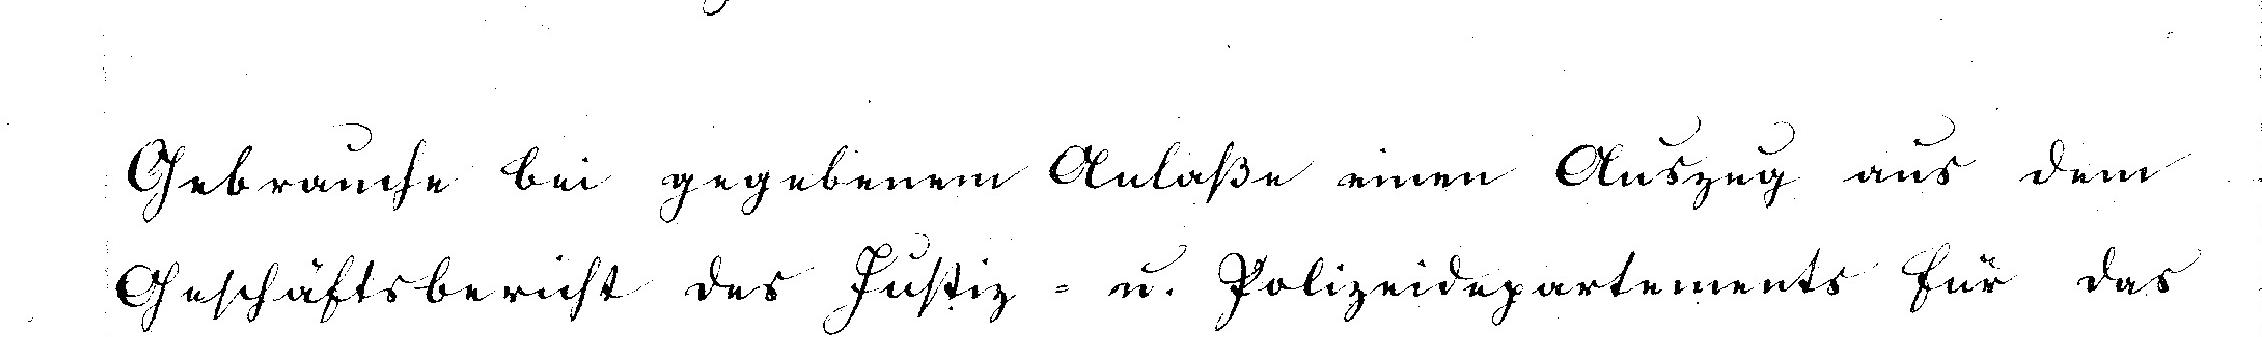 Gebrauche bei gegebenem Anlaße einen Auszug aus dem
Geschäftsbericht des Justiz- u. Polizeidepartements für das